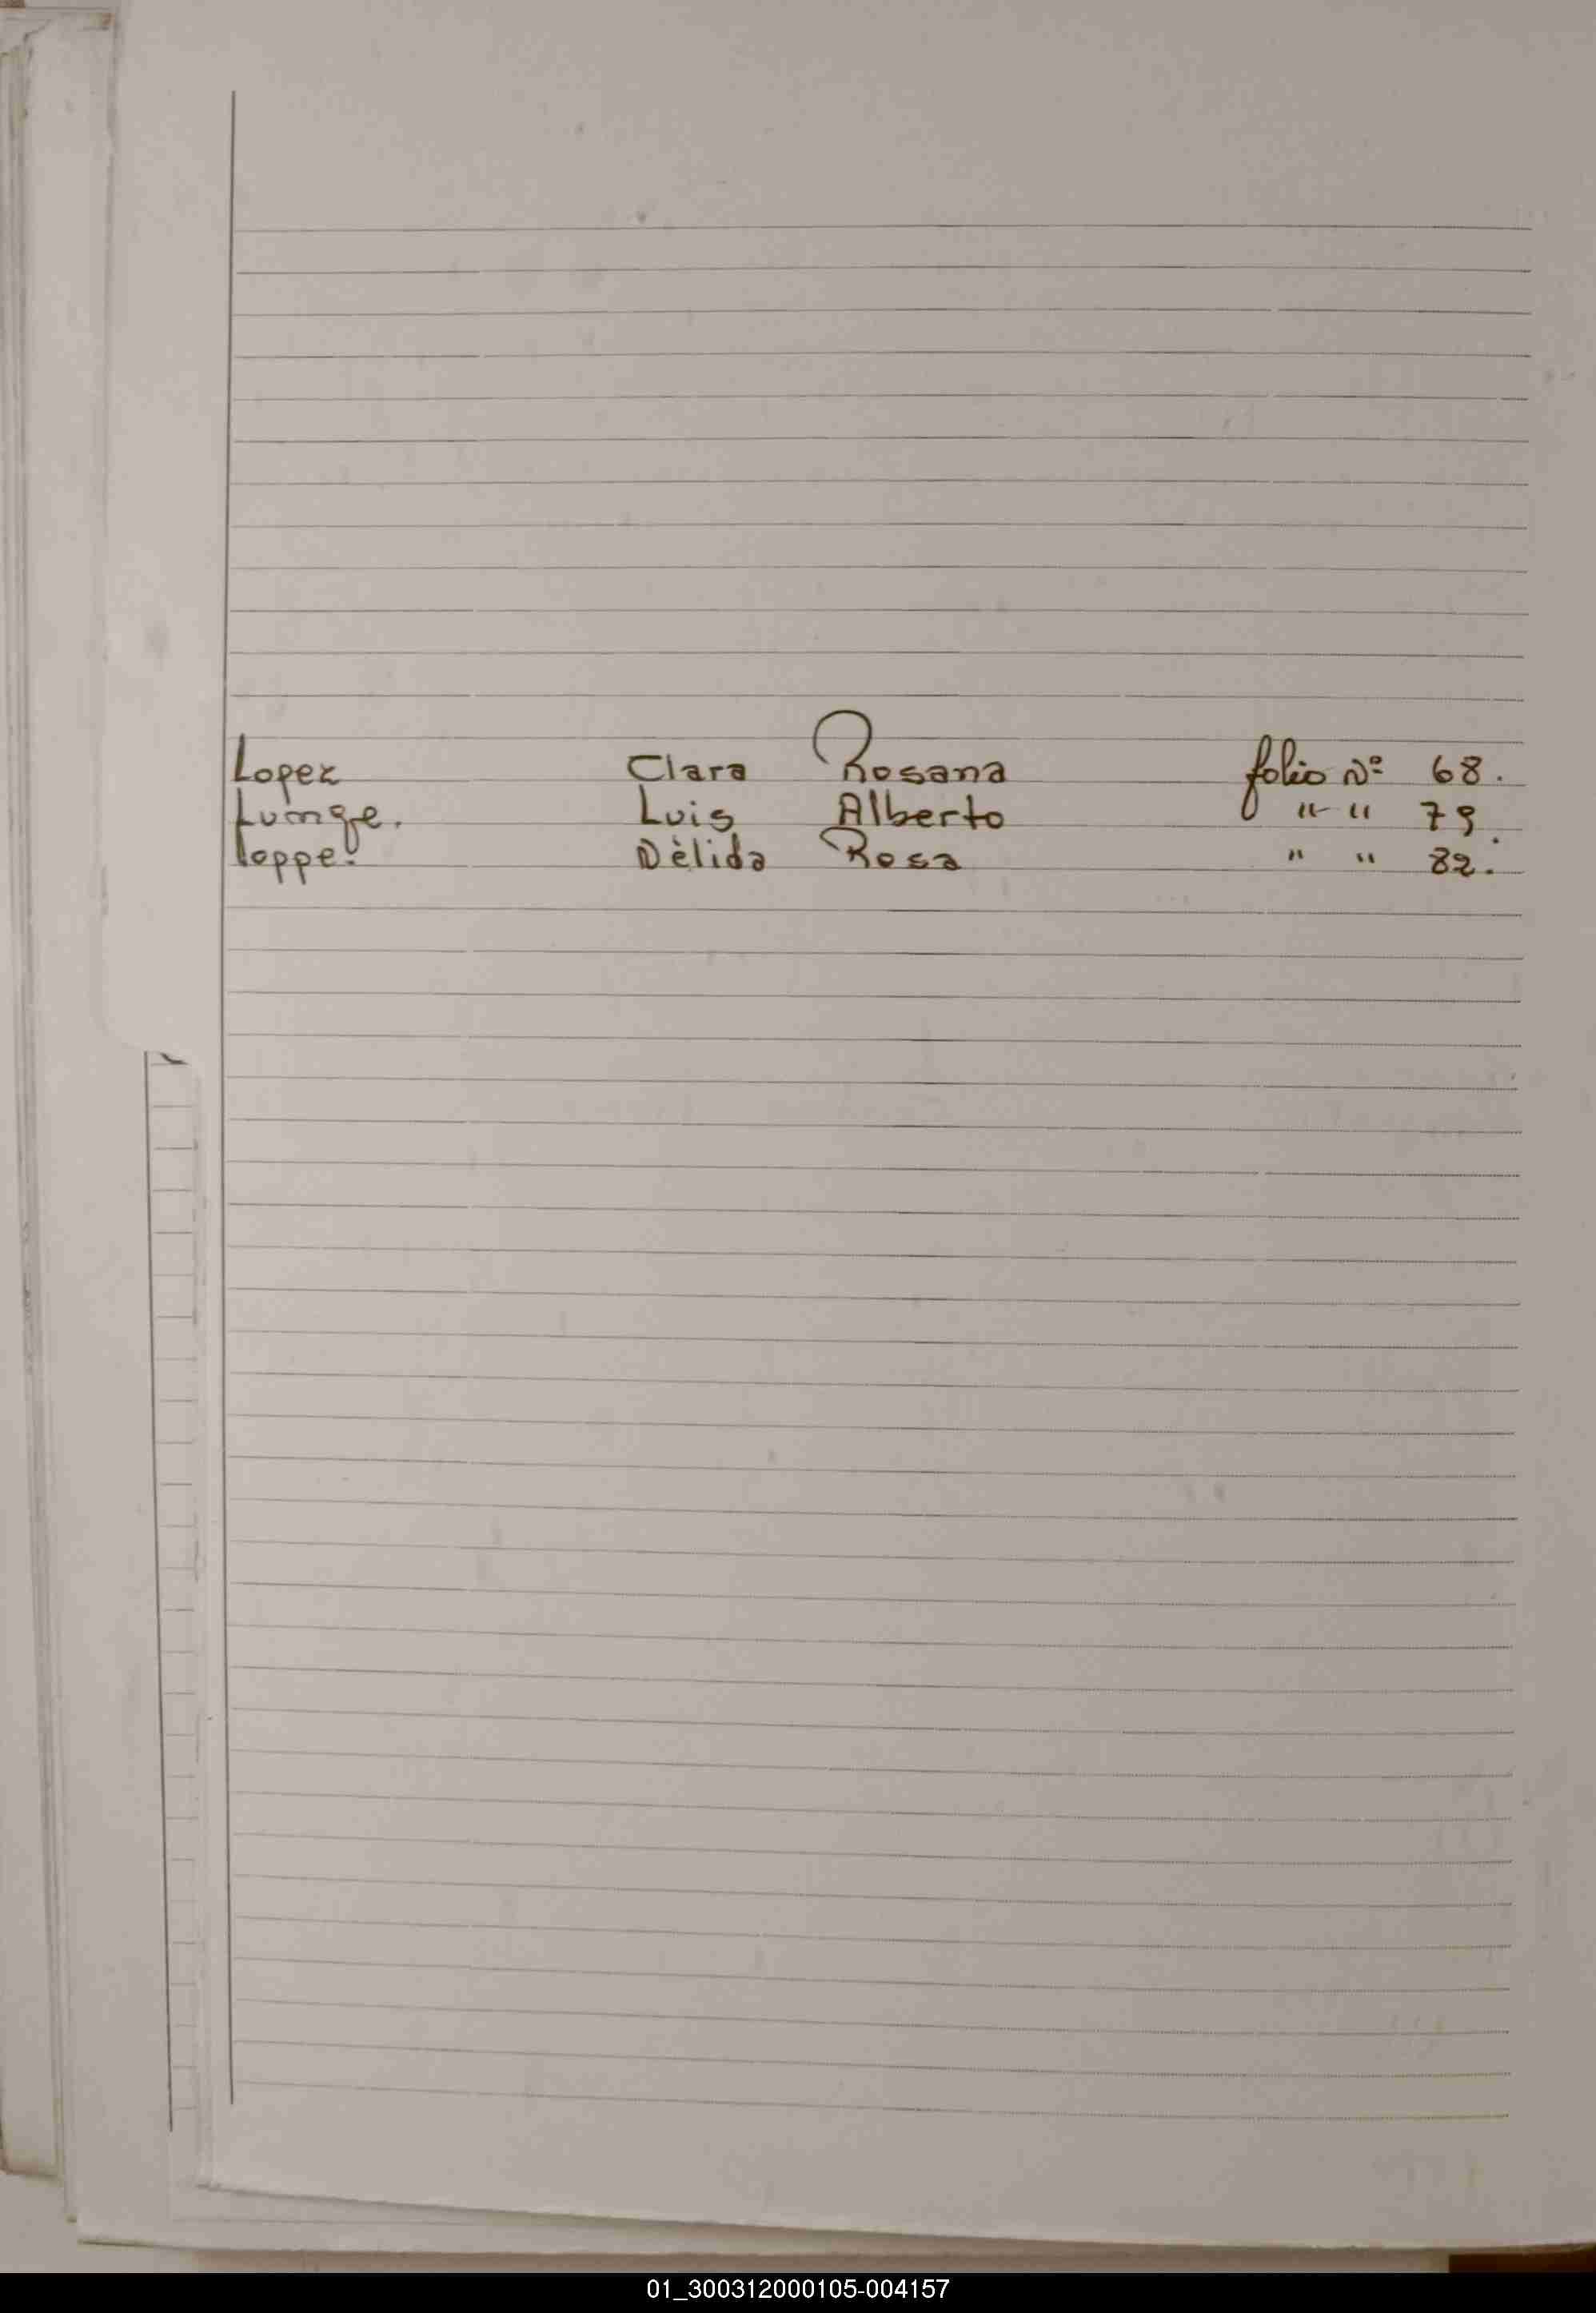 Lopez Clara Rosana folio Nº 68.
Luis Alberto " " 79.
Loppe. Dèlida Rosa " " 82.
01_300312000105-004157